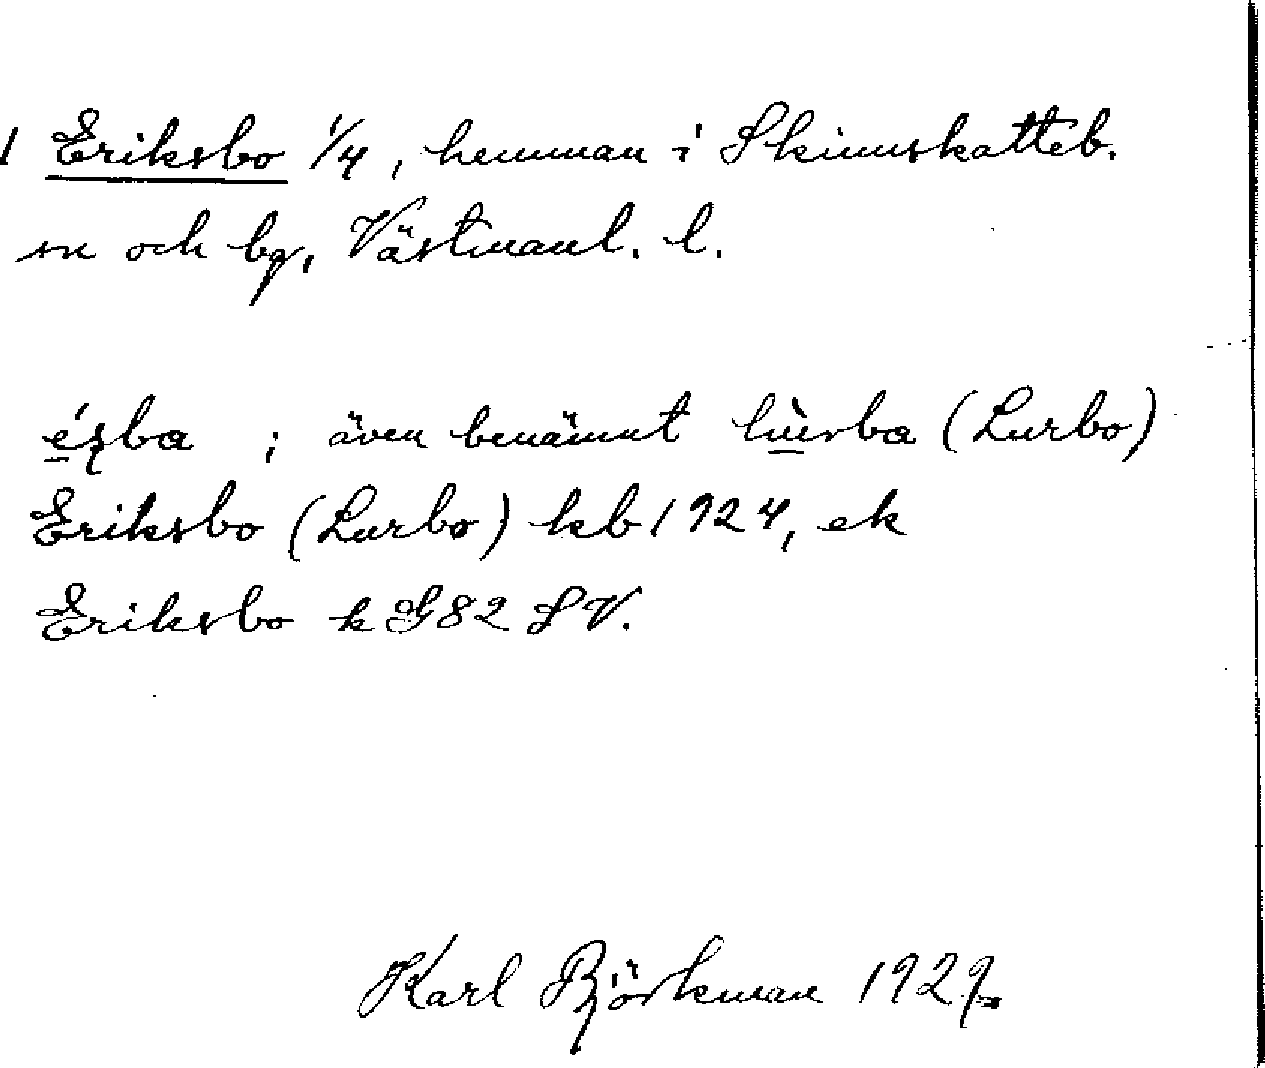 1 Eriksbo 1/4, hemman i Skinnskatteb.
sn och bg, Västmanl. l.
; även benämnt lùrba (Lurbo)
Eriksbo (Lurbo) kb 1924, ek
Eriksbo k G82 SV.
Karl Björkman 1929.